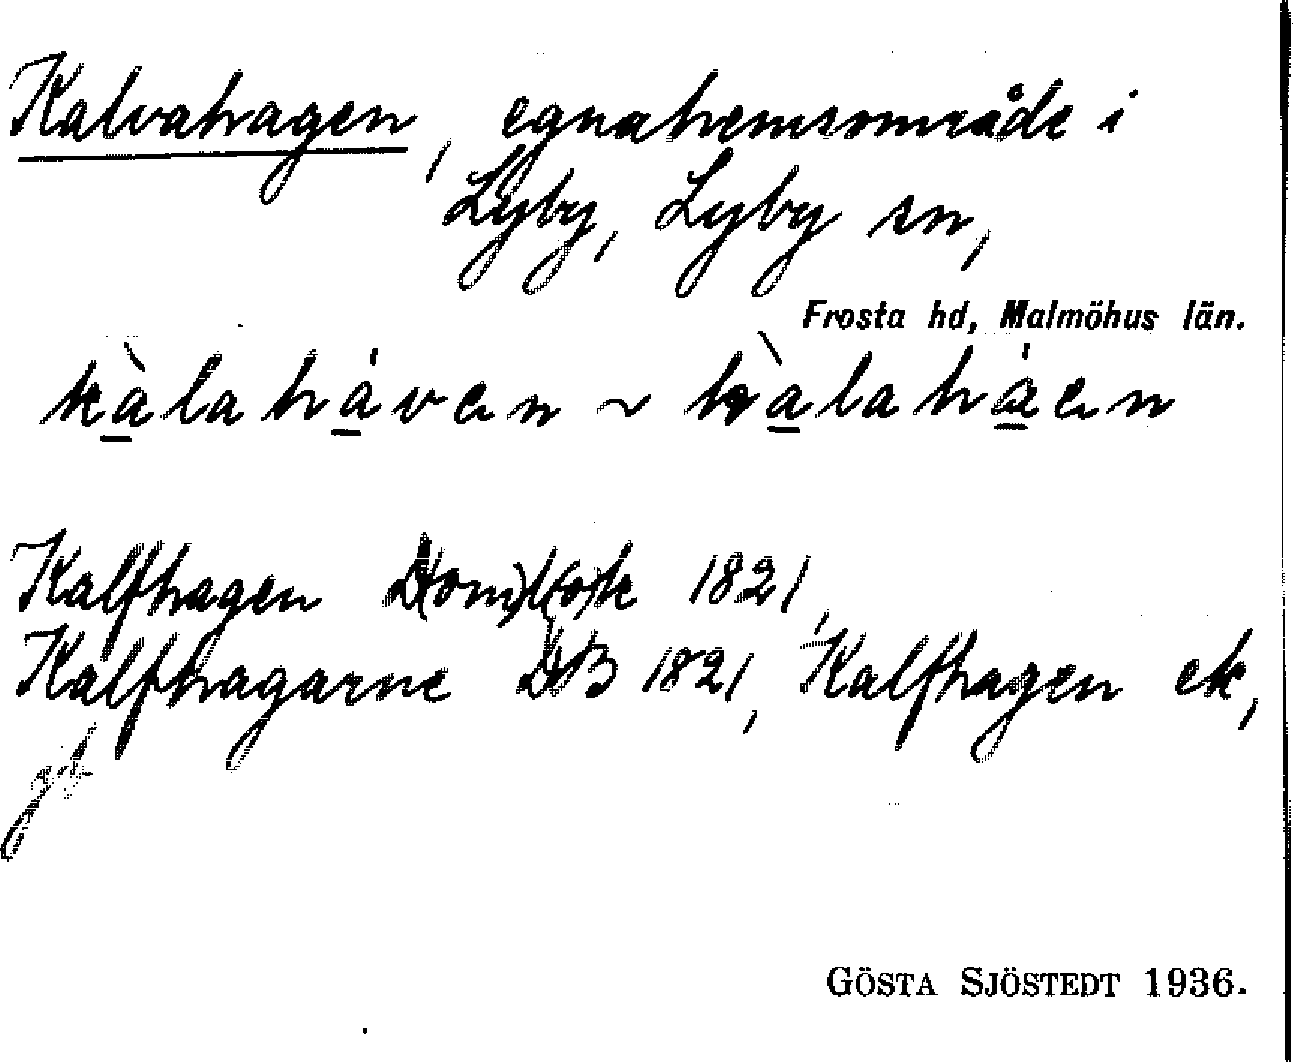 Kalvahagen, egnahemsområde i
Lyby, Lyby sn,
Frosta hd, Malmöhus län.
kàlaháven ~ kàlaháen
Kalfhagen D(om)b(o)k 1821,
Kalfhagarne DB 1821, Kalfhagen ek,
gb
GÖSTA SJÖSTEDT 1936.